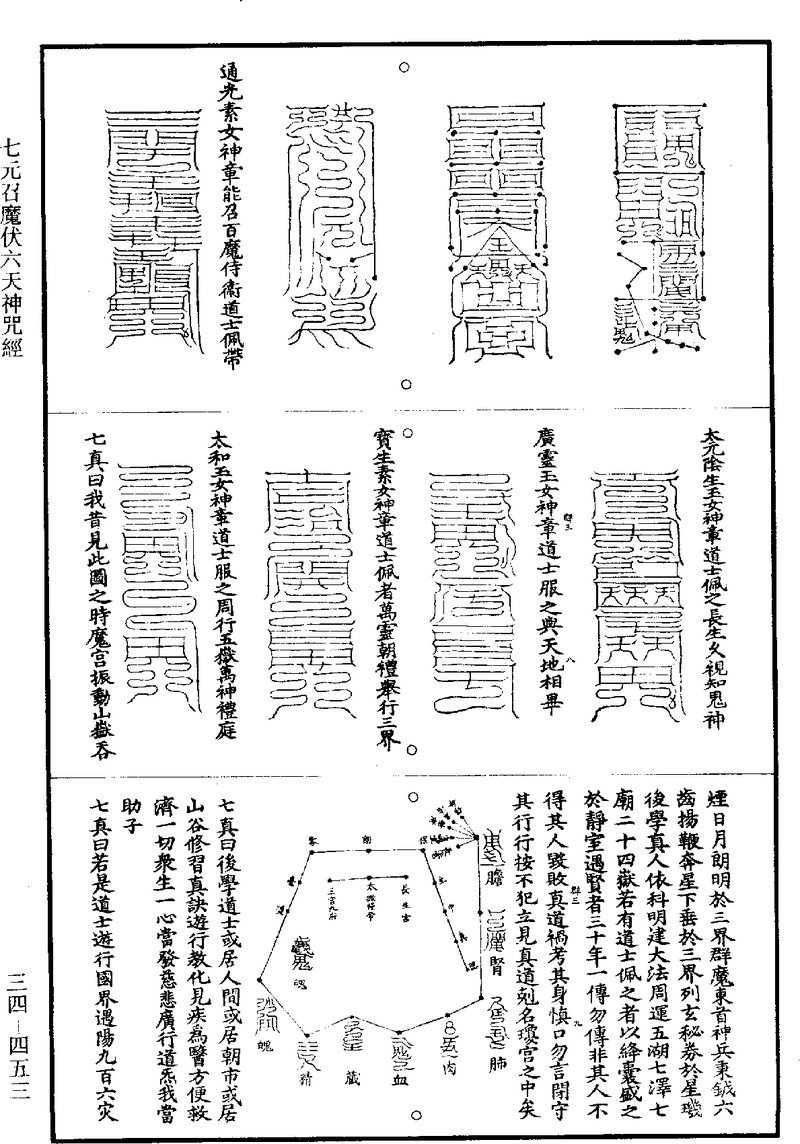 七元召魔伏六天神咒經
三四—四五三
通光素女神章能召百魔侍衛道士佩帶
太元陰生玉女神章道士佩之長生久視知鬼神
廣靈玉女神章道士服之與天地相畢
群三
八
寶生素女神章道士佩者萬靈朝禮舉行三界
太和玉女神章道士服之周行五嶽萬神禮庭
七真曰我昔見此圖之時魔宮振動山嶽吞
煙日月朗明於三界群魔東首神兵秉鉞六
齒揚鞭奔星下垂於三界列玄秘券於星璣
後學真人依科明建大法周運五湖七澤七
廟二十四嶽若有道士佩之者以絳囊盛之
於靜室遇賢者三十年一傳勿傳非其人不
群三
九
得其人毀敗真道禍考其身慎口勿言閉守
其行行按不犯立見真道剋名瓊宮之中矣
膽
腎
肺
肉
血
藏
精
魄
魄
長生宮
三宮九府
七真曰後學道士或居人間或居朝市或居
山谷修習真訣遊行教化見疾為醫方便救
濟一切衆生一心當發慈悲廣行道炁我當
助子
七真曰若是道士遊行國界遇陽九百六灾